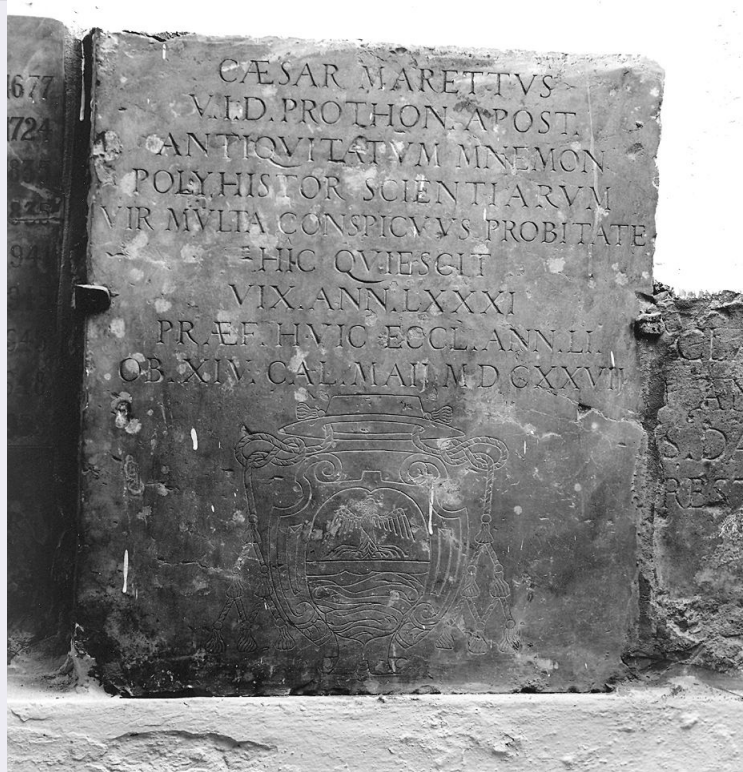 CÆSAR MARETTVS
V.I.D. PROTHON. APOST.
ANTIQVITATVM MNEMON
POLYHISTOR SCIENTIARVM
VIR MVLTA CONSPICVVS PROBITATE
HIC QVIESCIT
VIX. ANN. LXXXI
PRÆF. HVIC ECCL. ANN. LI.
OB. XIV. CAL. MAII M D CXXVII
1677
1724